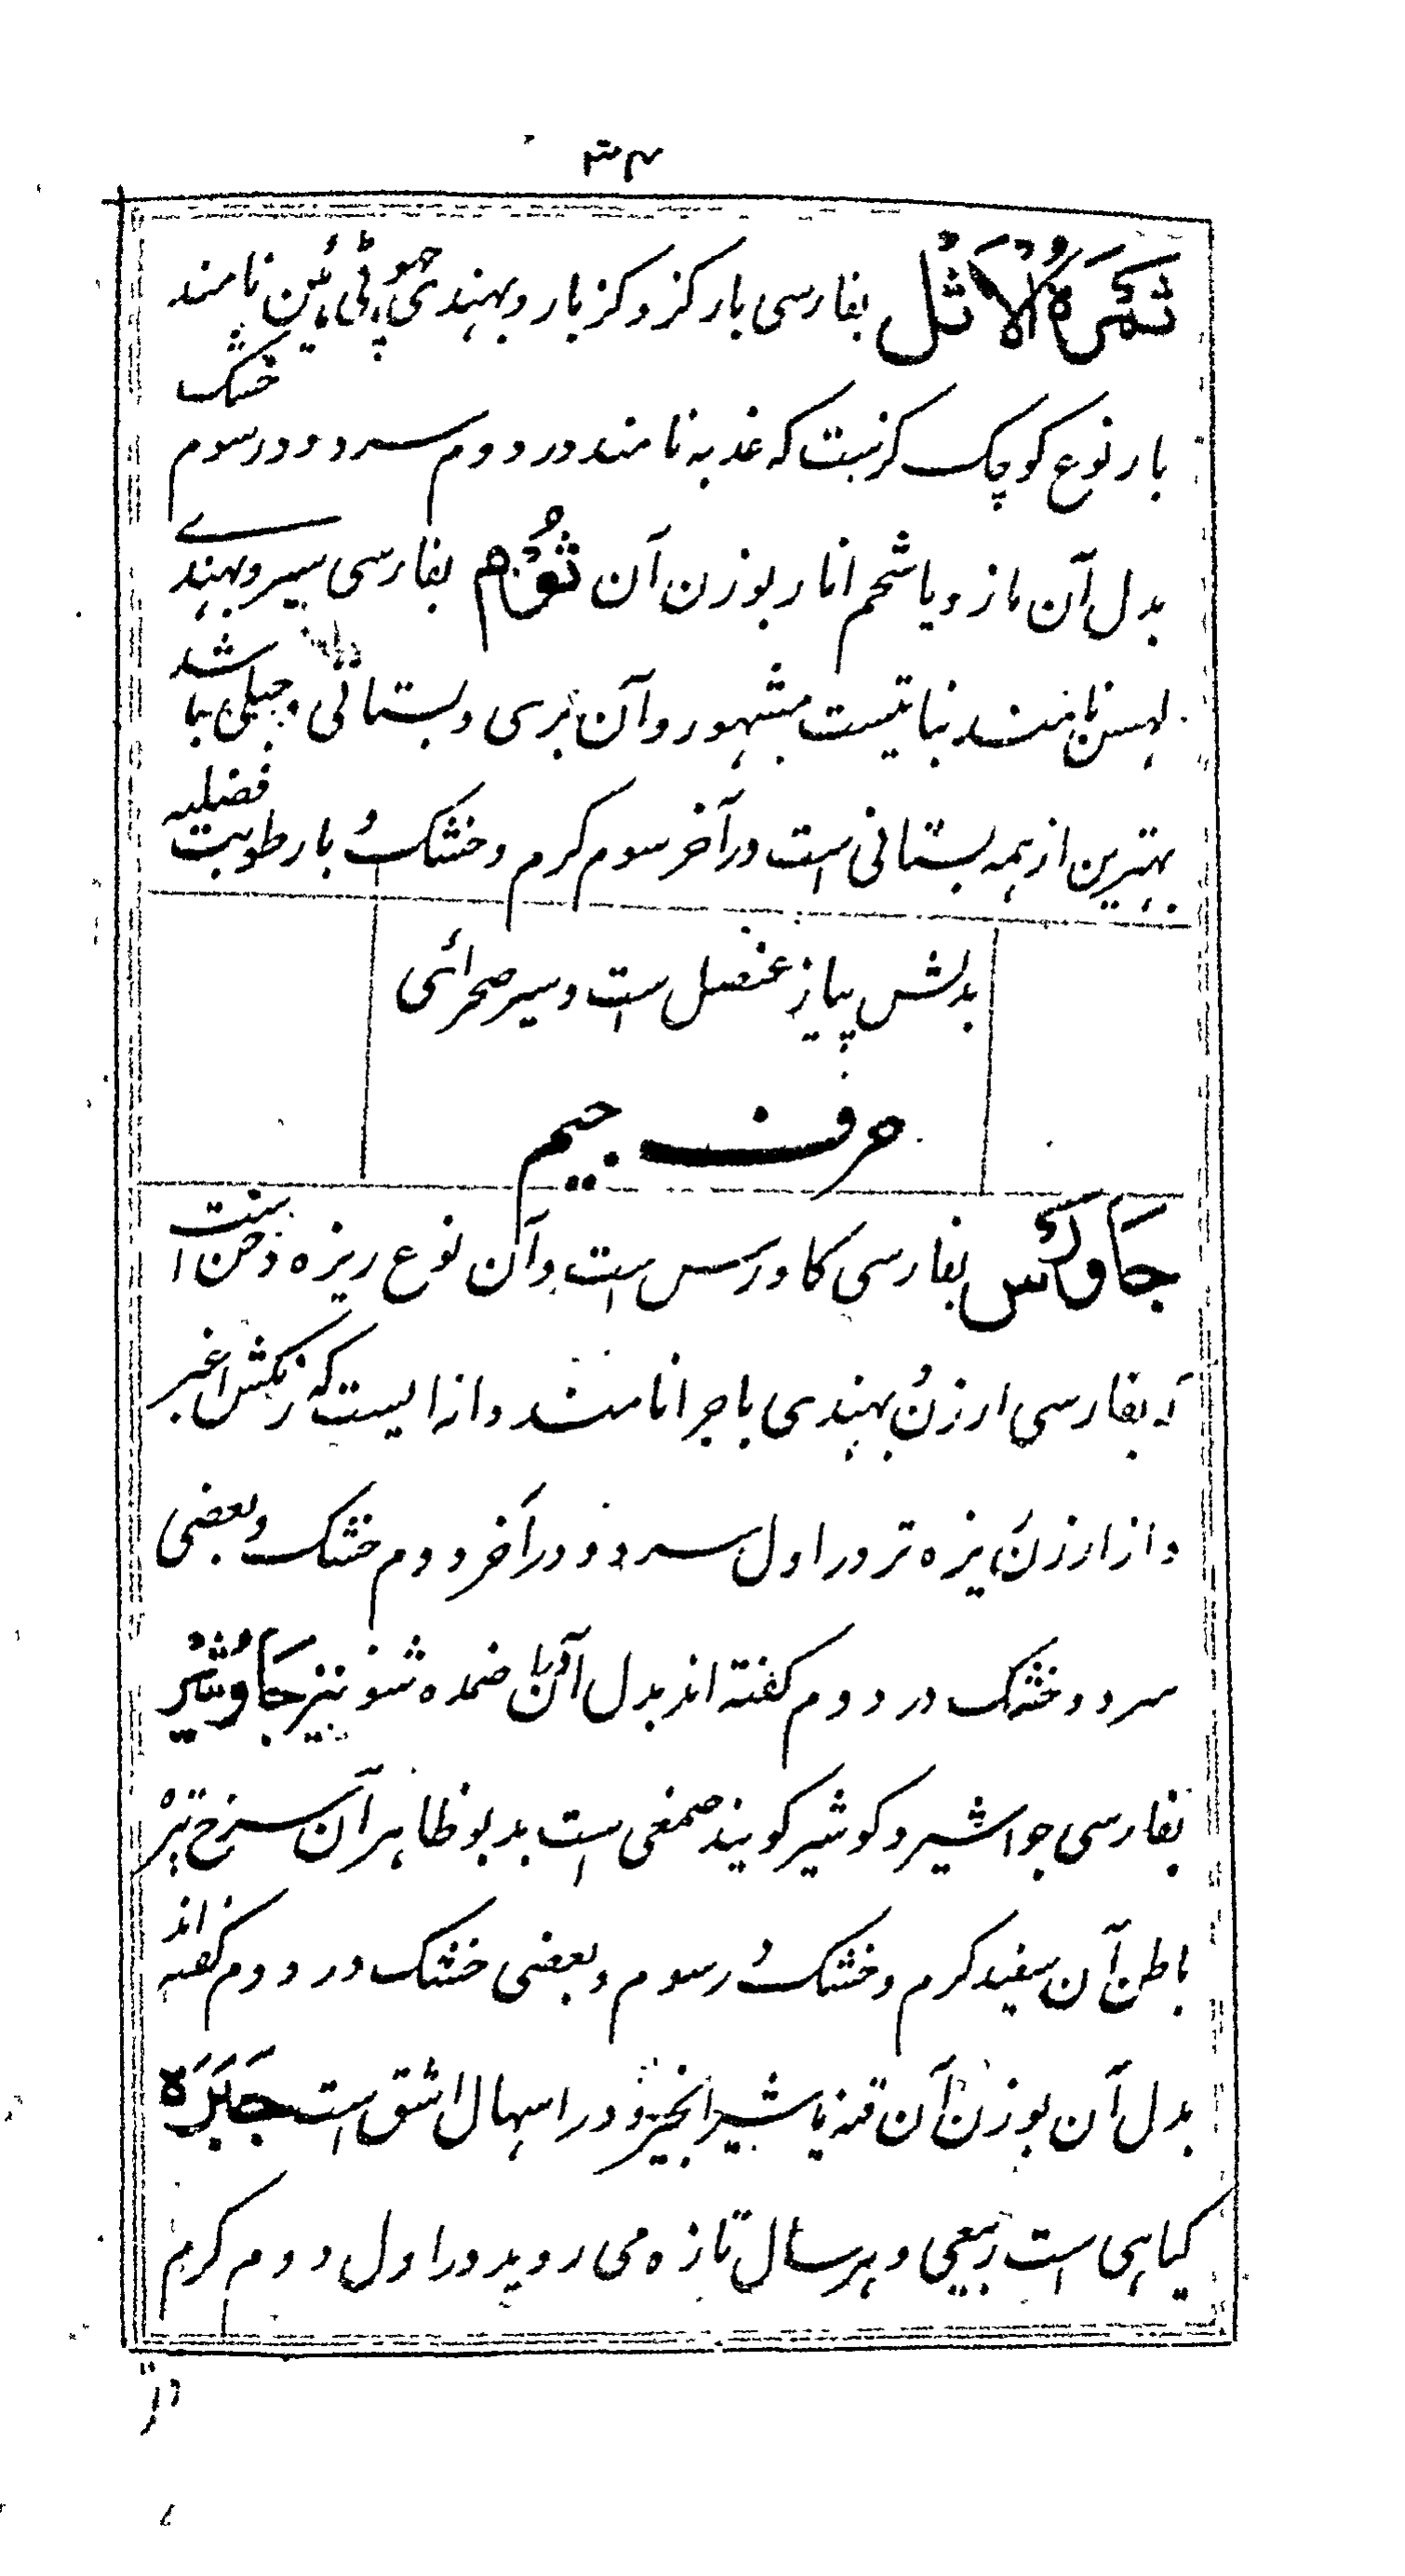 ۳۴
ثَمَرَةُ الْاَثْل بفارسی بار کز و کزبار و بهندی چھوٹی مئین نامند
بار نوع کوچک کزست که عذبه نامند در دوم سرد و در سوم خشک
بدل آن مازو یا شحم انار بوزن آن ثُوْم بفارسی سیر و بهندے
لہسن نامند نباتیست مشهور و آن بری و بستانی و جبلی باشد
بهترین از همه بستانی است در آخر سوم کرم و خشک و با رطوبت فضلیه
بدلش پیاز عنصل است و سیر صحرائی
حرف جیم
جَاوَرْس بفارسی کاورس است و آن نوع ریزه دخن است
که بفارسی ارزن و بهندی باجرا نامند دانه ایست که رنکش اغبر
و از ارزن ریزه تر در اول سرد و در آخر دوم خشک و بعضی
سرد و خشک در دوم کفته اند بدل آن با ضمده شونیز جَاوُشِیْر
بفارسی جواشیر و کوشیر کویند صمغی است بدبو ظاهر آن سرخ تیره
باطن آن سفید کرم و خشک در سوم و بعضی خشک در دوم کفته اند
بدل آن بوزن آن قنه یا شیر انجیر و در اسهال اشق است جَبَرَه
کیاهی است ربیعی و هر سال تازه می روید در اول دوم کرم